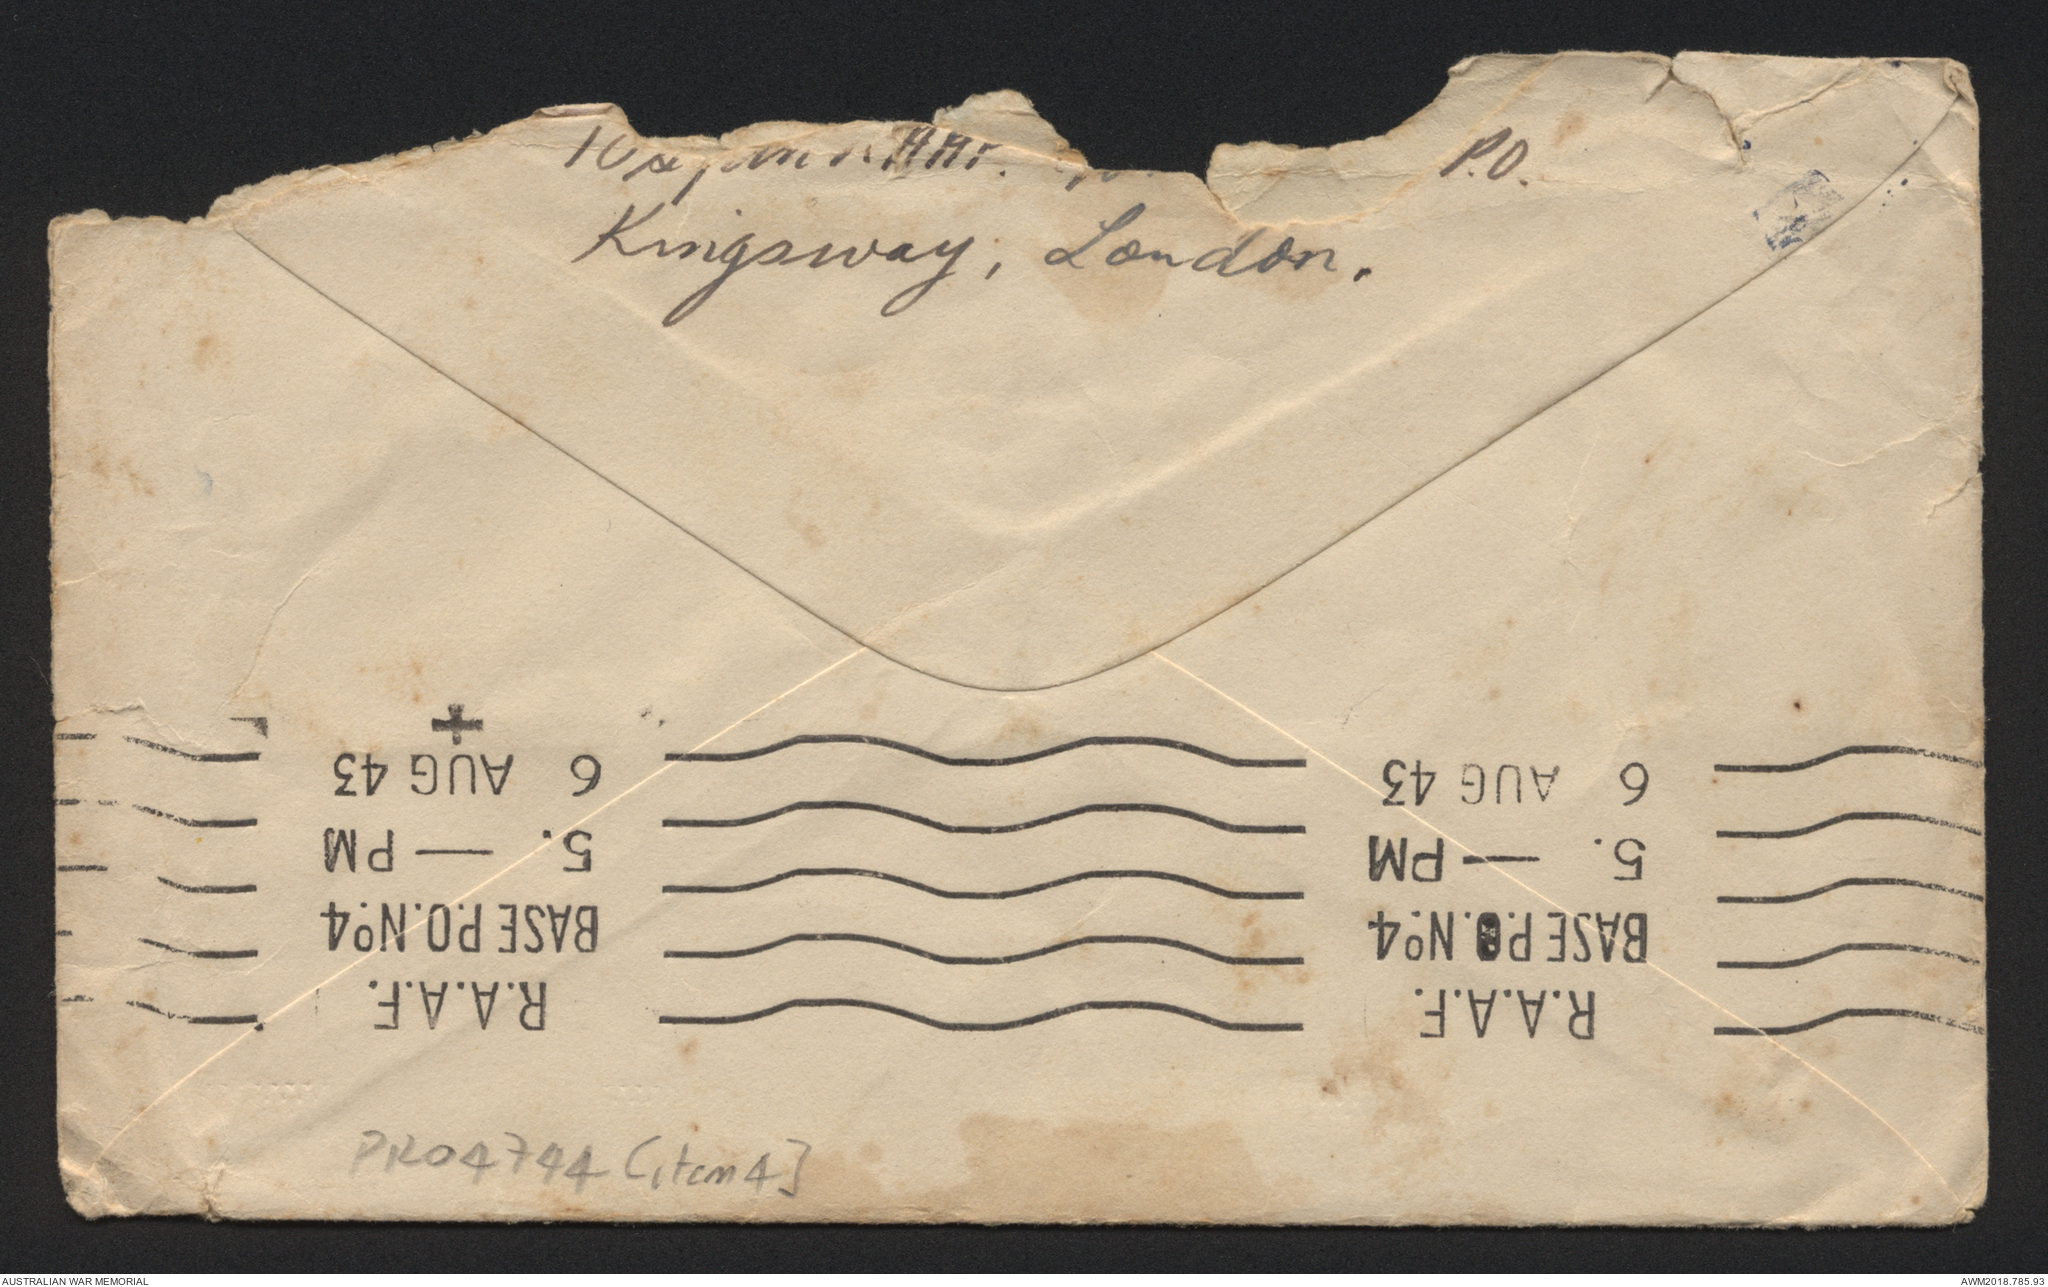 P.O.
Kingsway, London.
6 AUG 43
5. — PM
BASE P.O. Nº4
R.A.A.F.
6 AUG 43
5. — PM
BASE P.O. Nº4
R.A.A.F.
PR04744 (item 4]
AUSTRALIAN WAR MEMORIAL
AWM2018.785.93